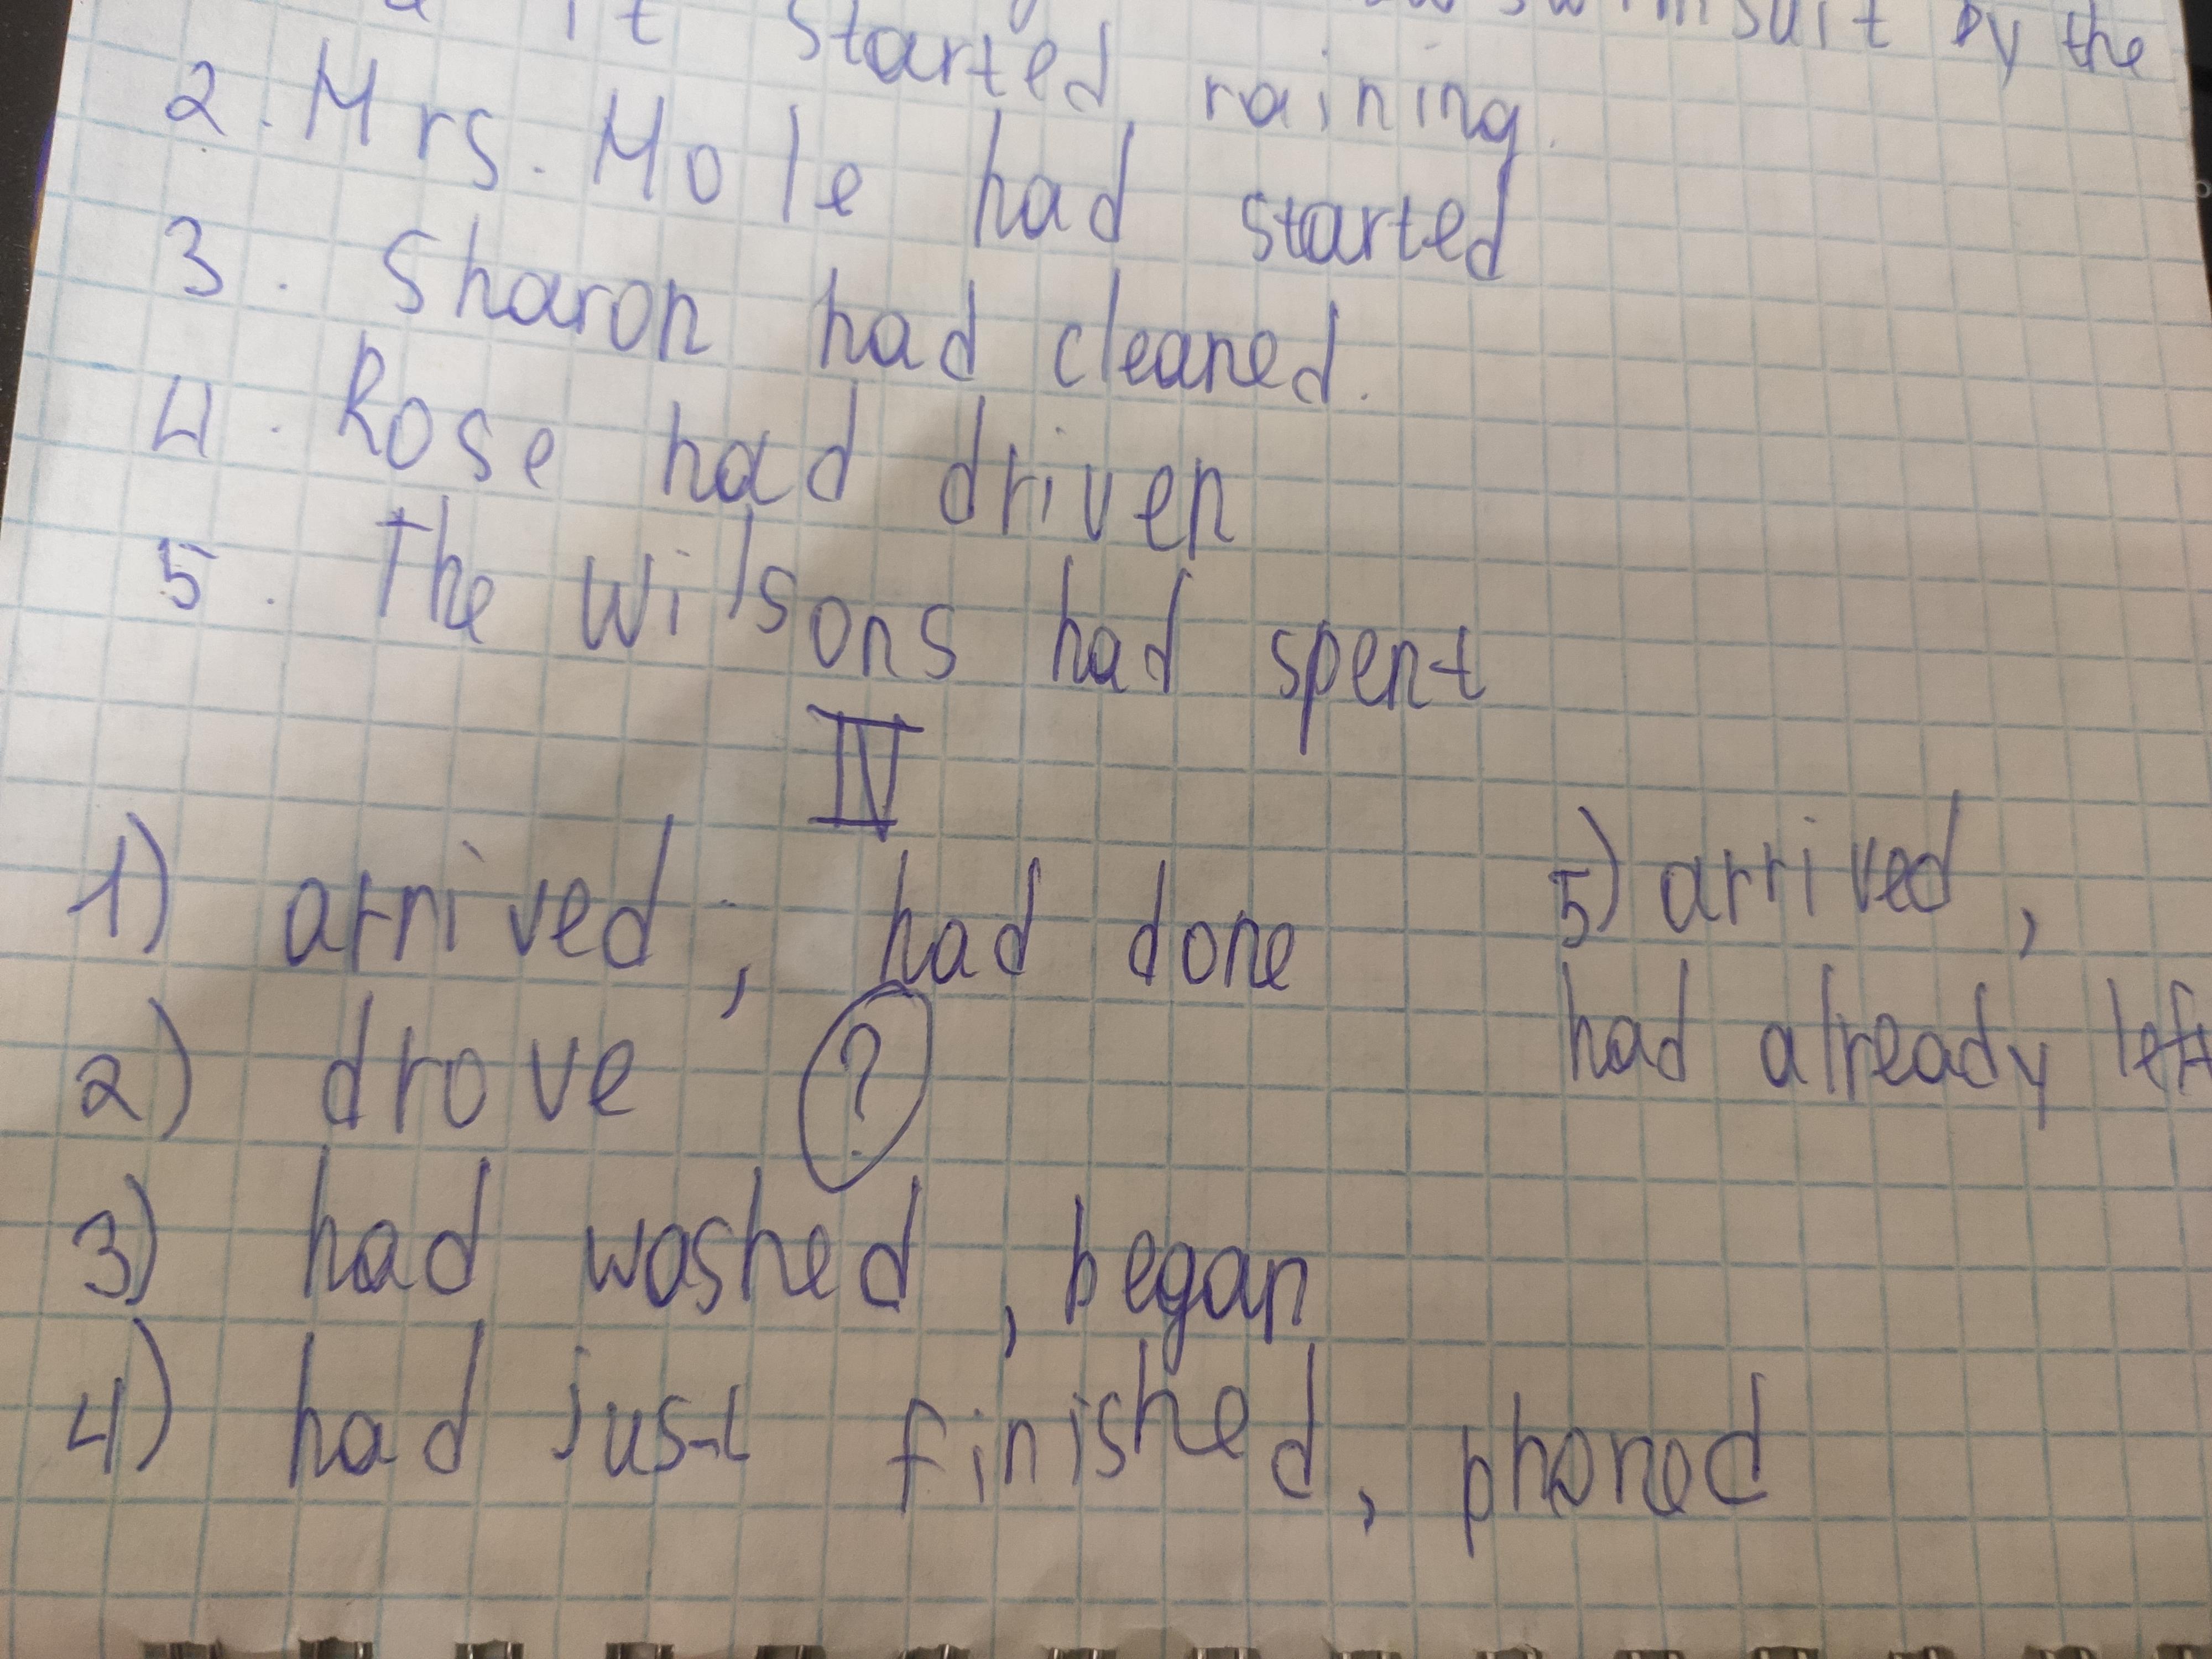 it started raining.
swimsuit by the
2. Mrs. Mole had started
3. Sharon had cleaned.
4. Rose had driven
5. The Wilsons had spent
IV
1) arrived; had done
2) drove ?
3) had washed, began
4) had just finished, phoned
5) arrived,
had already left